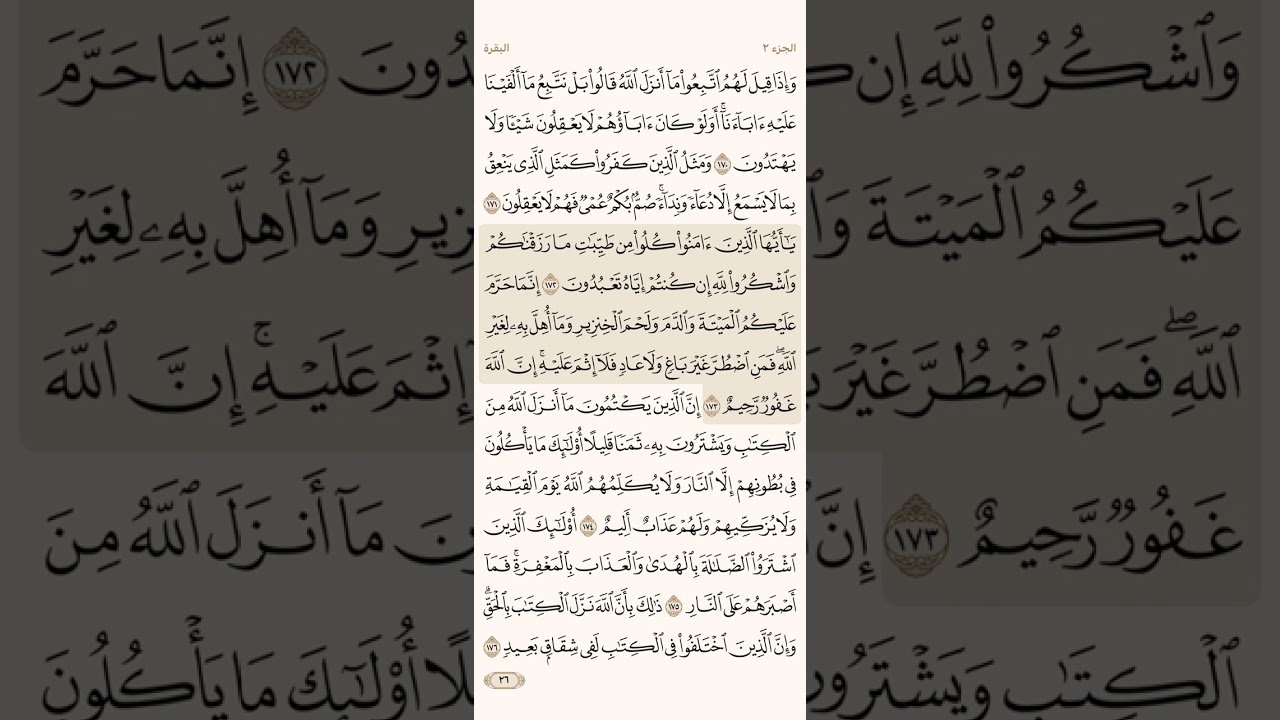 الجزء ٢
البقرة
وَإِذَا قِيلَ لَهُمُ ٱتَّبِعُوا۟ مَآ أَنزَلَ ٱللَّهُ قَالُوا۟ بَلْ نَتَّبِعُ مَآ أَلْفَيْنَا
عَلَيْهِ ءَابَآءَنَآ ۗ أَوَلَوْ كَانَ ءَابَآؤُهُمْ لَا يَعْقِلُونَ شَيْـًٔا وَلَا
يَهْتَدُونَ ١٧٠ وَمَثَلُ ٱلَّذِينَ كَفَرُوا۟ كَمَثَلِ ٱلَّذِى يَنْعِقُ
بِمَا لَا يَسْمَعُ إِلَّا دُعَآءً وَنِدَآءً ۚ صُمٌّۢ بُكْمٌ عُمْىٌ فَهُمْ لَا يَعْقِلُونَ ١٧١
يَـٰٓأَيُّهَا ٱلَّذِينَ ءَامَنُوا۟ كُلُوا۟ مِن طَيِّبَـٰتِ مَا رَزَقْنَـٰكُمْ
وَٱشْكُرُوا۟ لِلَّهِ إِن كُنتُمْ إِيَّاهُ تَعْبُدُونَ ١٧٢ إِنَّمَا حَرَّمَ
عَلَيْكُمُ ٱلْمَيْتَةَ وَٱلدَّمَ وَلَحْمَ ٱلْخِنزِيرِ وَمَآ أُهِلَّ بِهِۦ لِغَيْرِ
ٱللَّهِ ۖ فَمَنِ ٱضْطُرَّ غَيْرَ بَاغٍ وَلَا عَادٍ فَلَآ إِثْمَ عَلَيْهِ ۚ إِنَّ ٱللَّهَ
غَفُورٌ رَّحِيمٌ ١٧٣ إِنَّ ٱلَّذِينَ يَكْتُمُونَ مَآ أَنزَلَ ٱللَّهُ مِنَ
ٱلْكِتَـٰبِ وَيَشْتَرُونَ بِهِۦ ثَمَنًا قَلِيلًا أُو۟لَـٰٓئِكَ مَا يَأْكُلُونَ
فِى بُطُونِهِمْ إِلَّا ٱلنَّارَ وَلَا يُكَلِّمُهُمُ ٱللَّهُ يَوْمَ ٱلْقِيَـٰمَةِ
وَلَا يُزَكِّيهِمْ وَلَهُمْ عَذَابٌ أَلِيمٌ ١٧٤ أُو۟لَـٰٓئِكَ ٱلَّذِينَ
ٱشْتَرَوُا۟ ٱلضَّلَـٰلَةَ بِٱلْهُدَىٰ وَٱلْعَذَابَ بِٱلْمَغْفِرَةِ ۚ فَمَآ
أَصْبَرَهُمْ عَلَى ٱلنَّارِ ١٧٥ ذَٰلِكَ بِأَنَّ ٱللَّهَ نَزَّلَ ٱلْكِتَـٰبَ بِٱلْحَقِّ ۗ
وَإِنَّ ٱلَّذِينَ ٱخْتَلَفُوا۟ فِى ٱلْكِتَـٰبِ لَفِى شِقَاقٍۭ بَعِيدٍ ١٧٦
٢٦